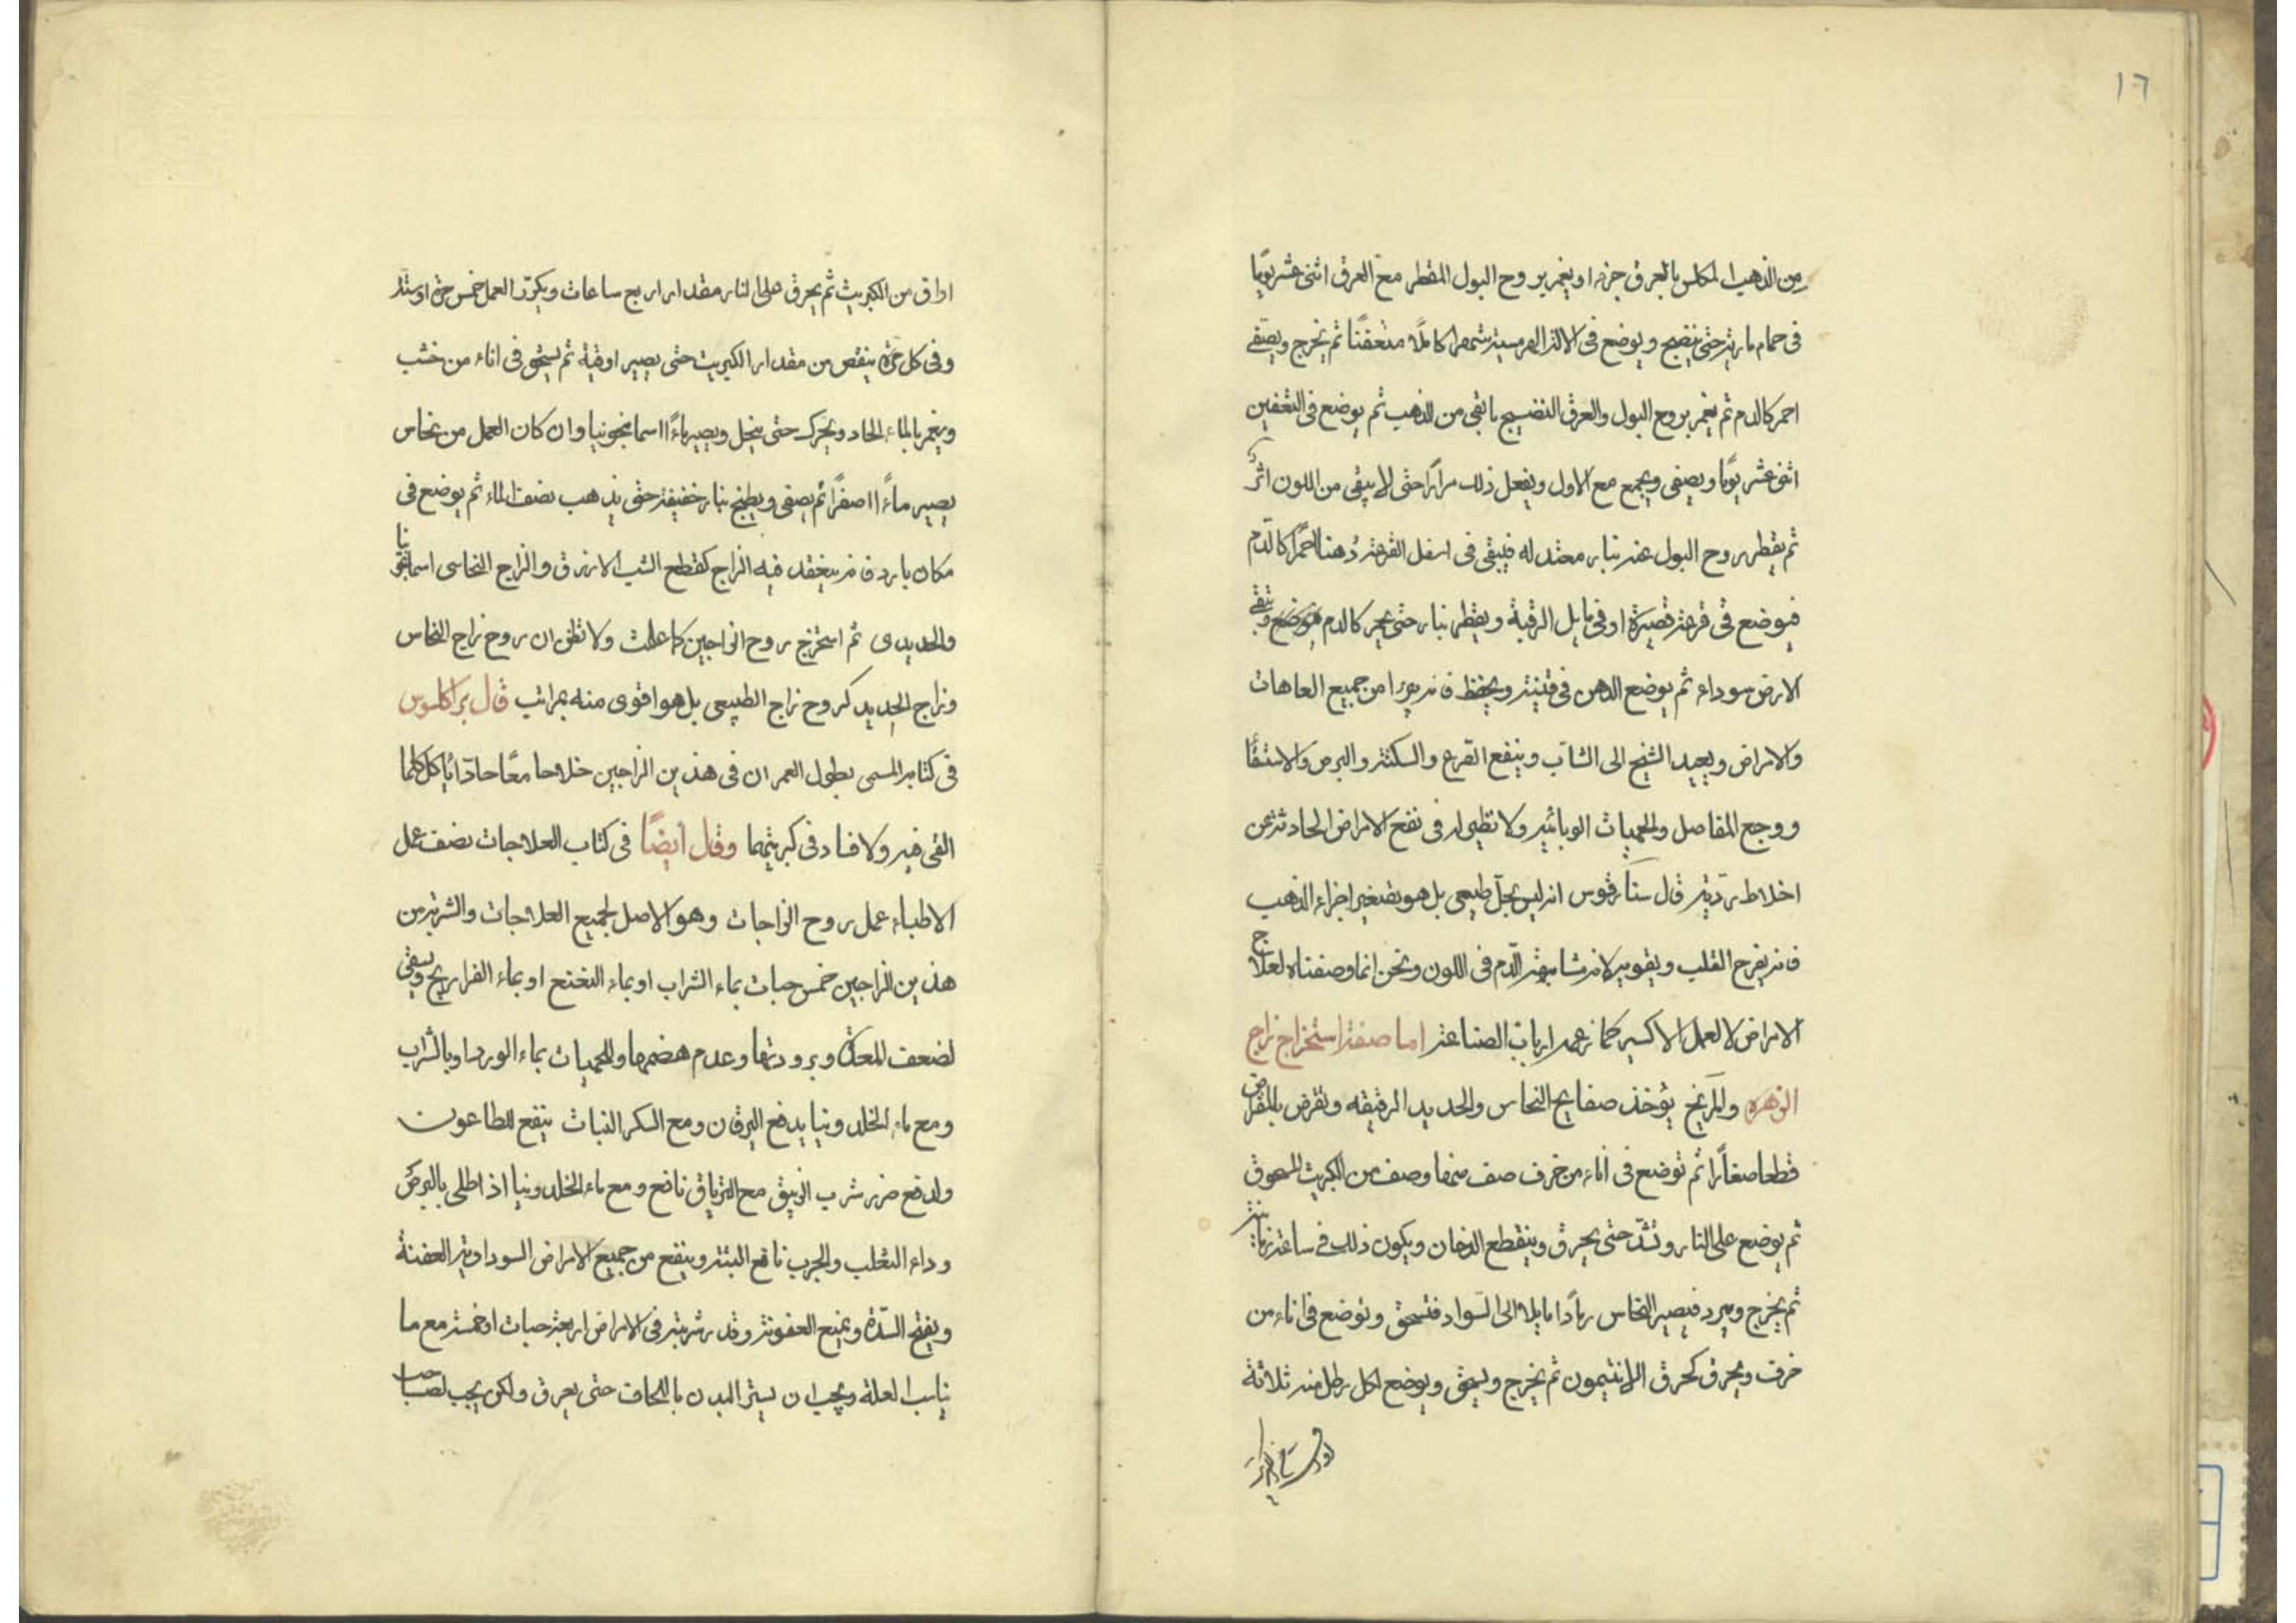 ١٦
من الذهب المكلس بالعرق جزء او يغمر بروح البول المقطر مع العرق اثنى عشر يوما
فى حمام مارية حتى ينضج ويوضع فى الالة الهرمسية شهرا كاملا متعفنا ثم يخرج ويصفى
احمر كالدم ثم يغمر بروح البول والعرق النضيج ما بقى من الذهب ثم يوضع فى التعفين
اثنى عشر يوما ويصفى ويجمع مع الاول ويفعل ذلك مرارا حتى لا يبقى من اللون اثر
ثم يقطر روح البول عنه بنار معتدله فيبقى فى اسفل القرعة دهنا احمرا كالدم
فيوضع فى قرعة قصيرة او فى مايل الرقبة ويقطر بنار حتى يحمر كالدم وتبقى
الارض سوداء ثم يوضع الدهن فى قنينة ويحفظ فانه يبرا من جميع العاهات
والامراض ويعيد الشيخ الى الشاب وينفع القرع والسكتة والبرص والاستسقا
ووجع المفاصل والحميات الوبائيه ولا نظير له فى نفع الامراض الحادثة عن
اخلاط رديه قال سنارتوس انه ليس بحل طبيعى بل هو تصغير اجزاء الذهب
فانه يفرح القلب ويقويه لانه مشابهة الدم فى اللون ونحن انما وصفناه لعلاج
الامراض لا لعمل الاكسير كما زعمه ارباب الصناعة اما صفة استخراج زاج
الزهره والمريخ يؤخذ صفايح النحاس والحديد الرقيقه وتقرض بالمقراض
قطعا صغارا ثم توضع فى اناء من خزف صف منها وصف من الكبريت المسحوق
ثم يوضع على النار وتشد حتى يحرق وينقطع الدخان ويكون ذلك فى ساعة زمانية
ثم يخرج ويبرد فيصير النحاس رمادا مايلا الى السواد فتسحق وتوضع فى اناء من
خزف ويحرق كحرق الانتيمون ثم يخرج ويسحق ويوضع لكل رطل منه ثلاثة
اواق من الكبريت ثم يحرق على النار مقدار اربع ساعات ويكرر العمل خمس مرة او ستة
وفى كل مرة ينقص من مقدار الكبريت حتى يصير اوقية ثم يسحق فى اناء من خشب
ويغمر بالماء الحاد ويحرك حتى ينحل ويصير ماءا اسمانجونيا وان كان العمل من نحاس
يصير ماءا اصفرا ثم يصفى ويطبخ بنار خفيفة حتى يذهب نصف الماء ثم يوضع فى
مكان بارد فانه ينعقد فيه الزاج كقطع الشب الازرق والزاج النحاسى
والحديدى ثم استخرج روح الزاجين كما علمت ولا تظن ان روح زاج النحاس
وزاج الحديد كروح زاج الطبيعى بل هو اقوى منه بمراتب قال براكلسوس
فى كتابه المسمى بطول العمر ان فى هذين الزاجين خلاحا معا حادا ياكل كلما
القى فيه ولا فساد فى كبريتهما وقال ايضا فى كتاب العلاجات نصف عمل
الاطباء عمل روح الزاجات وهو الاصل لجميع العلاجات والشربة من
هذين الزاجين خمس حبات بماء الشراب او بماء النعنع او بماء الفراريج ويسقى
لضعف المعدة وبرودتها وعدم هضمها وللحميات بماء الورد او بالشراب
ومع ماء الخلدونيا يدفع اليرقان ومع السكر النبات ينفع للطاعون
ولدفع ضرر شرب الزيبق مع الترياق نافع ومع ماء الخلدونيا اذ اطلى بالبرص
وداء الثعلب والجرب نافع البتة وينفع من جميع الامراض السوداوية العفنة
ويفتح السدة ويمنع العفونة وقدر شربته فى الامراض اربعة حبات او خمسة مع ما
يناسب العلة ويجب ان يستر البدن باللحاف حتى يعرق ولكن يجب لصاحب